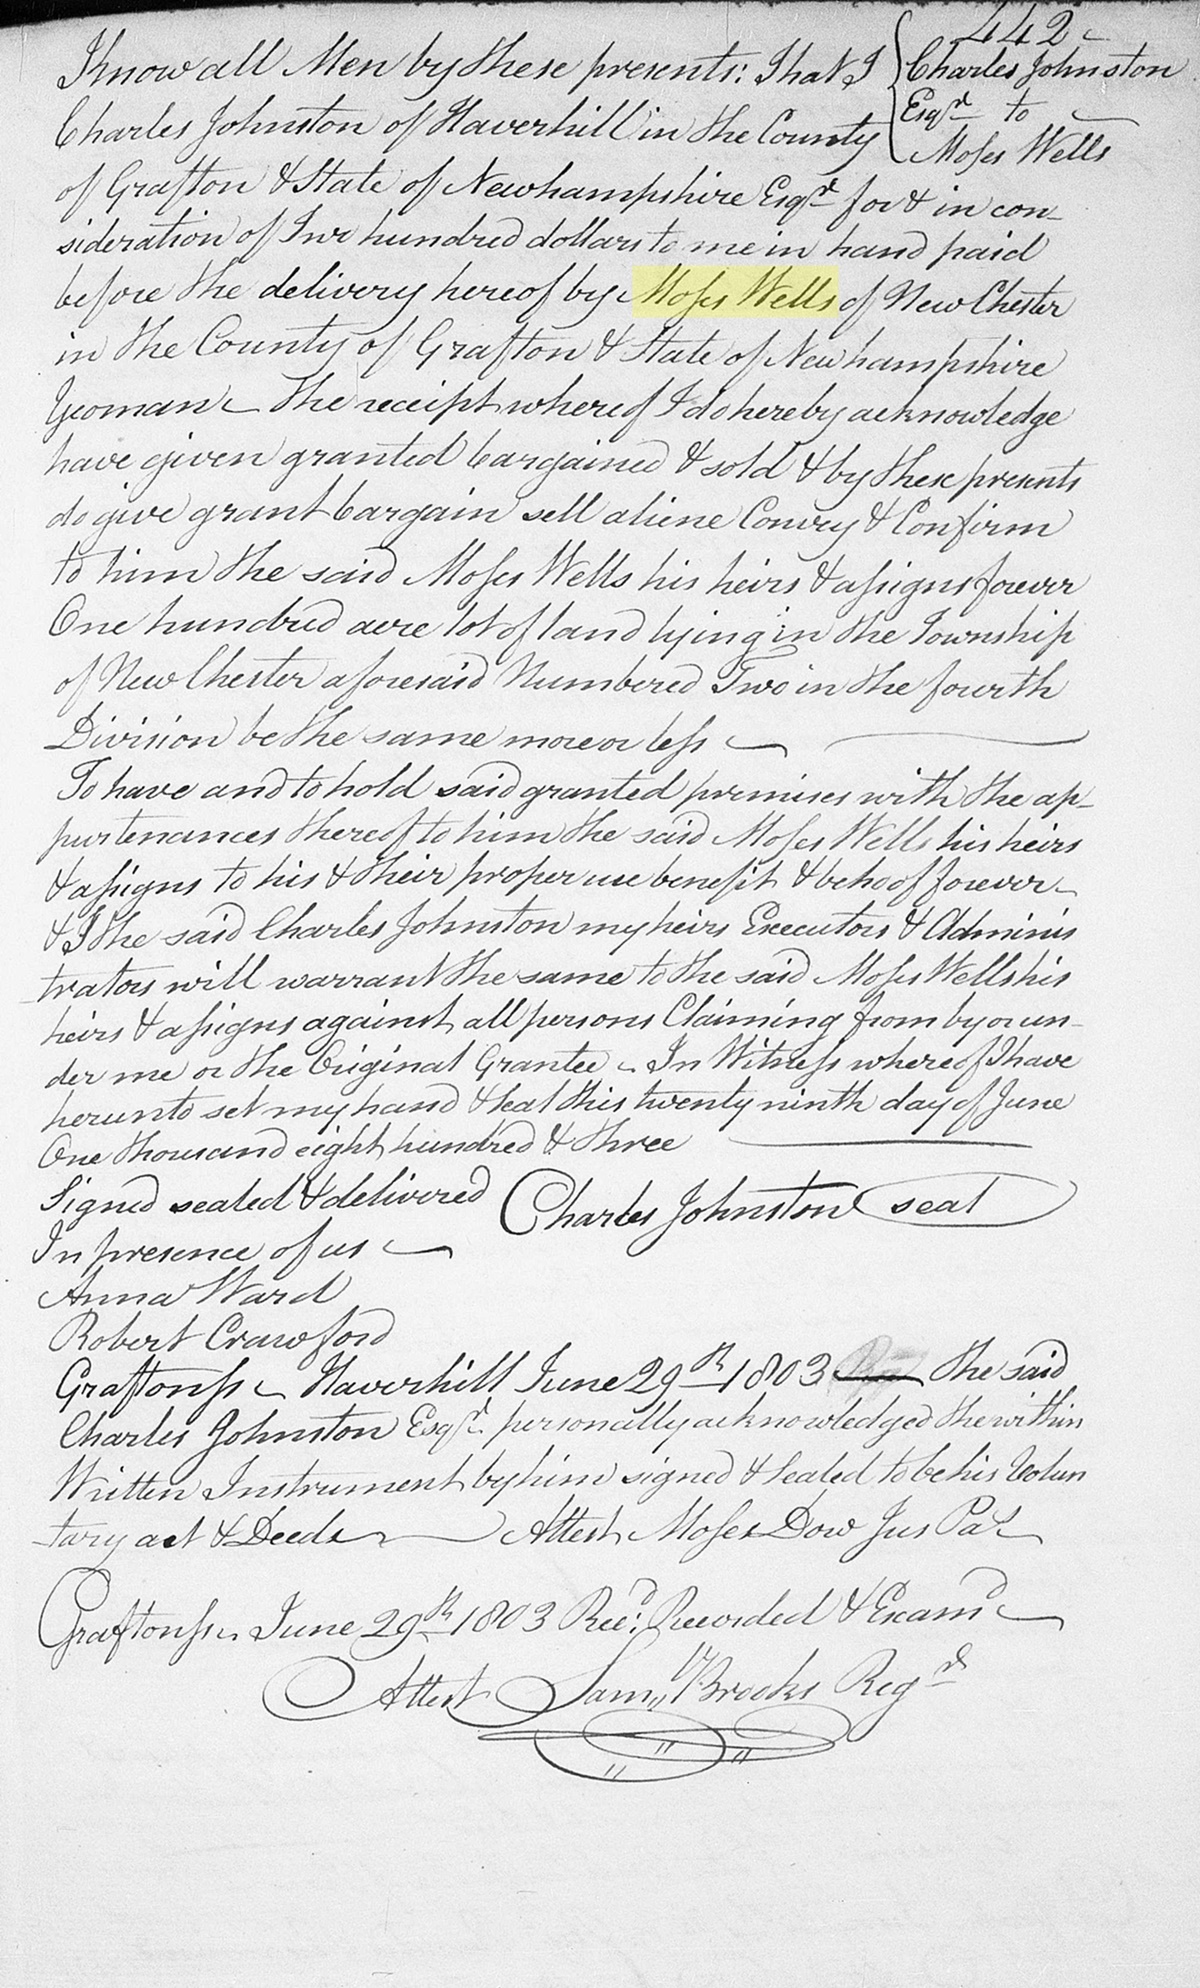 442
Charles Johnston
Esqr to
Moses Wells
Know all Men by these presents: That I
Charles Johnston of Haverhill in the County
of Grafton & State of Newhampshire Esqr for & in con-
sideration of Two hundred dollars to me in hand paid
before the delivery hereof by Moses Wells of New Chester
in the County of Grafton & State of New hampshire
Yeoman The receipt whereof I do hereby acknowledge
have given granted bargained & sold & by these presents
do give grant bargain sell aliene Convey & Confirm
to him the said Moses Wells his heirs & assigns forever
One hundred acre lot of land lying in the Township
of New Chester aforesaid Numbered Two in the fourth
Division be the same more or less
To have and to hold said granted premises with the ap-
purtenances thereof to him the said Moses Wells his heirs
& assigns to his & their proper use benefit & behoof forever
& I the said Charles Johnston my heirs Executors & Adminis
trators will warrant the same to the said Moses Wells his
heirs & assigns against all persons Claiming from by or un-
der me or the Original Grantee - In Witness whereof I have
herunto set my hand & seal this twenty ninth day of June
One thousand eight hundred & three
Signed sealed & delivered Charles Johnston seal
In presence of us
Anna Ward
Robert Crawford
Grafton ss Haverhill June 29th 1803 the said
Charles Johnston Esqr personally acknowledged the within
Written Instrument by him signed & sealed to be his Volun
tary act & Deeds Attest Moses Dow Jus Pac
Grafton ss June 29th 1803 Recd: Recorded & Examd
Attest Samll Brooks Regr